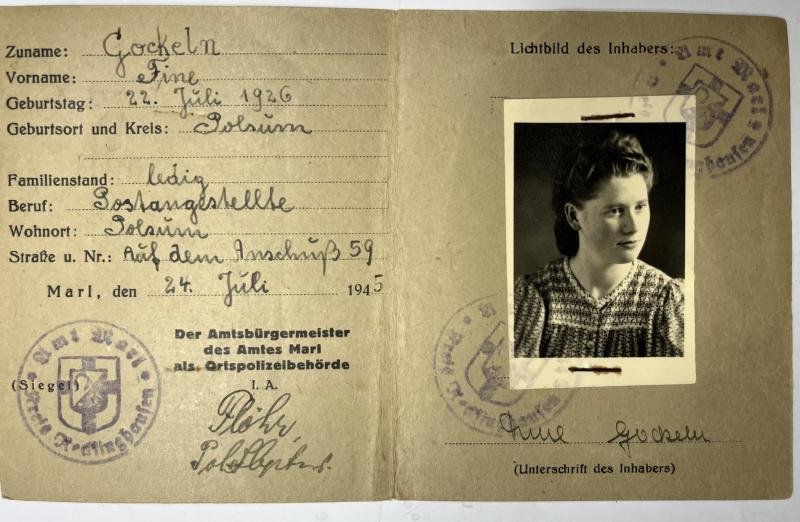 Zuname: Gockeln
Vorname: Fine
Geburtstag: 22. Juli 1926
Geburtsort und Kreis: Polsum
Familienstand: ledig
Beruf: Postangestellte
Wohnort: Polsum
Straße u. Nr.: Auf dem Anschuß 59
Marl, den 24. Juli 1945
Der Amtsbürgermeister
des Amtes Marl
als Ortspolizeibehörde
(Siegel)
I. A.
Amt Marl
Kreis Recklinghausen
Lichtbild des Inhabers:
Amt Marl
Recklinghausen
Amt
Kreis Recklinghausen
Fine Gockeln
(Unterschrift des Inhabers)